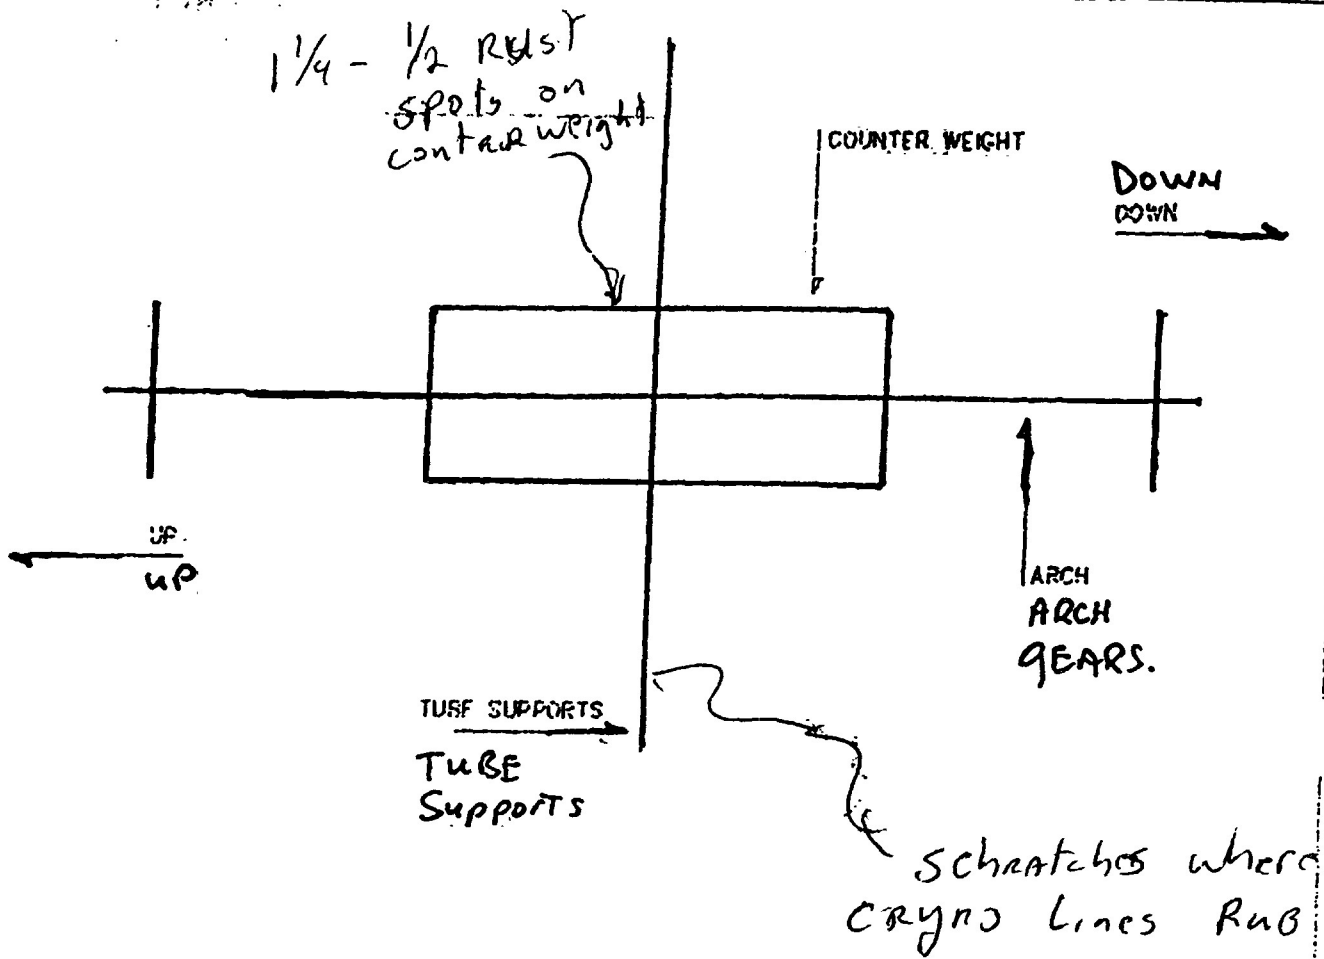 1 1/4 - 1/2 RUST
spots on
contaR weight
COUNTER WEIGHT
DOWN
DOWN
UP
UP
ARCH
ARCH
GEARS.
TUBE SUPPORTS
TUBE
SuppoRTS
SchRAtches where
CRYRO Lines RuB